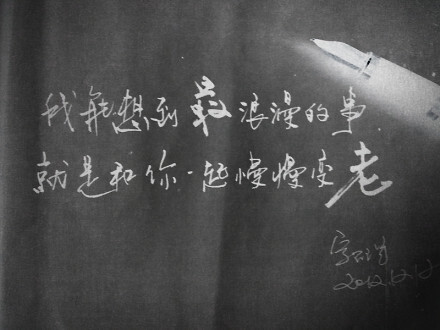 我能想到最浪漫的事
就是和你一起慢慢变老
2012.12.12